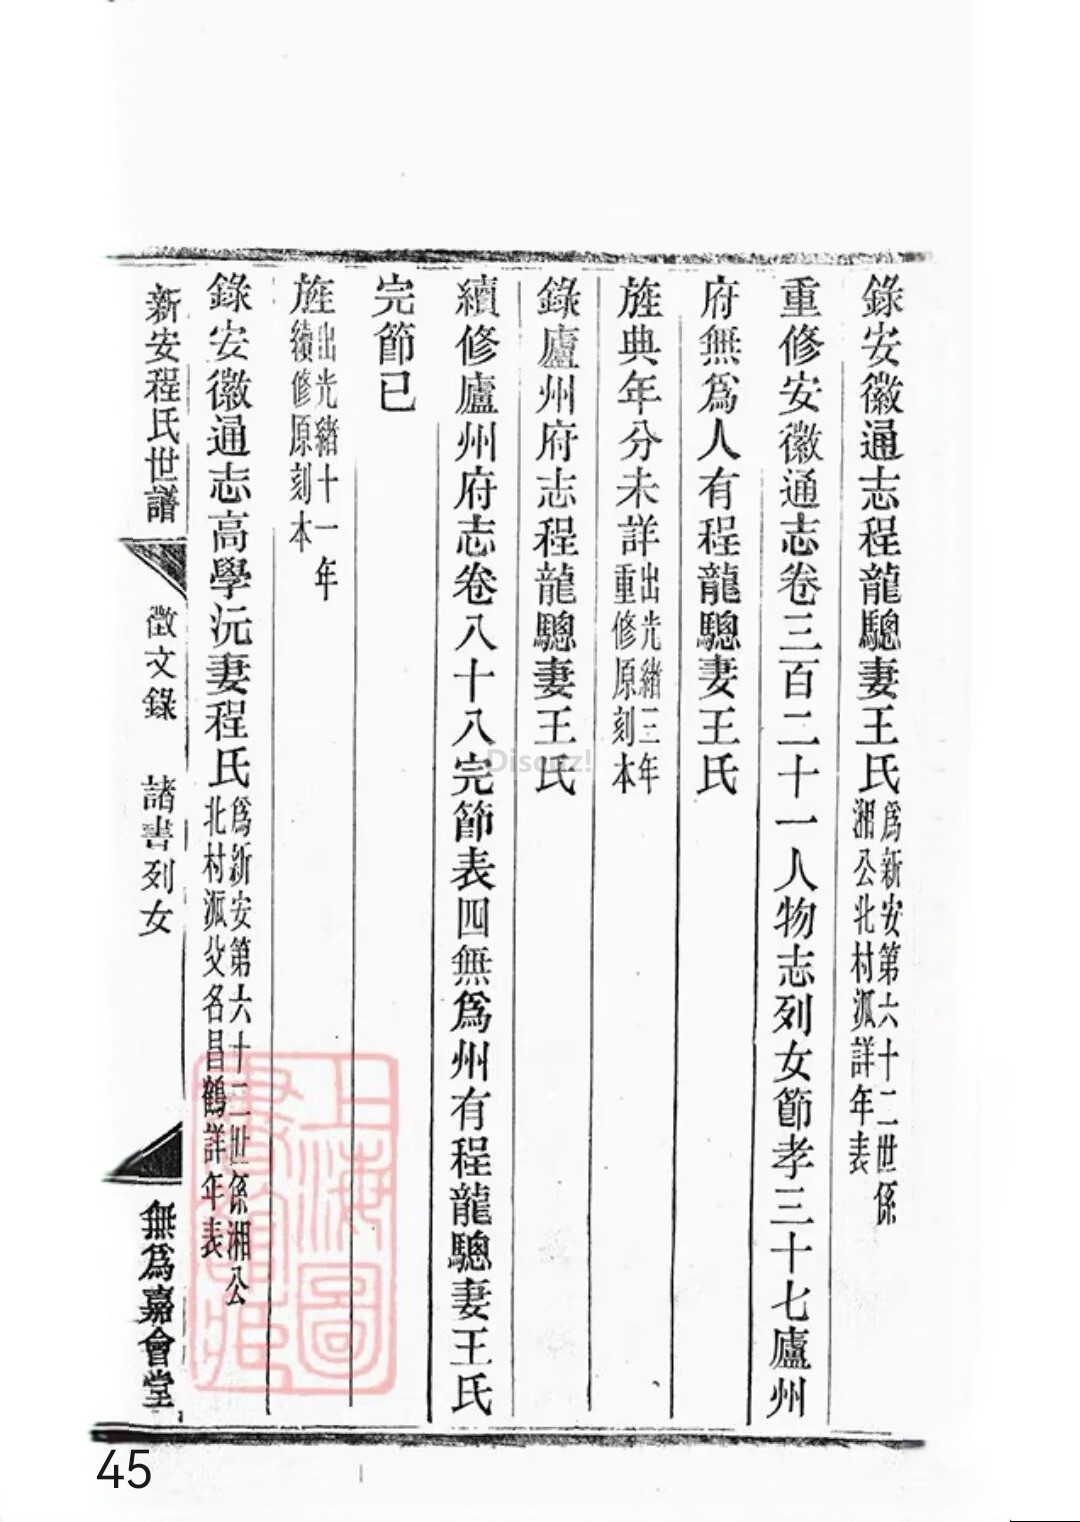 錄安徽通志程龍驄妻王氏爲新安第六十二世係湘公北村派詳年表
重修安徽通志卷三百二十一人物志列女節孝三十七廬州
府無爲人有程龍驄妻王氏
旌典年分未詳出光緒三年重修原刻本
錄廬州府志程龍驄妻王氏
續修廬州府志卷八十八完節表四無爲州有程龍驄妻王氏
完節已
旌出光緒十一年續修原刻本
錄安徽通志高學沅妻程氏爲新安第六十二世係湘公北村派父名昌鶴詳年表
新安程氏世譜 徵文錄 諸書列女 無爲嘉會堂
上海圖書館藏
Discuz!
45